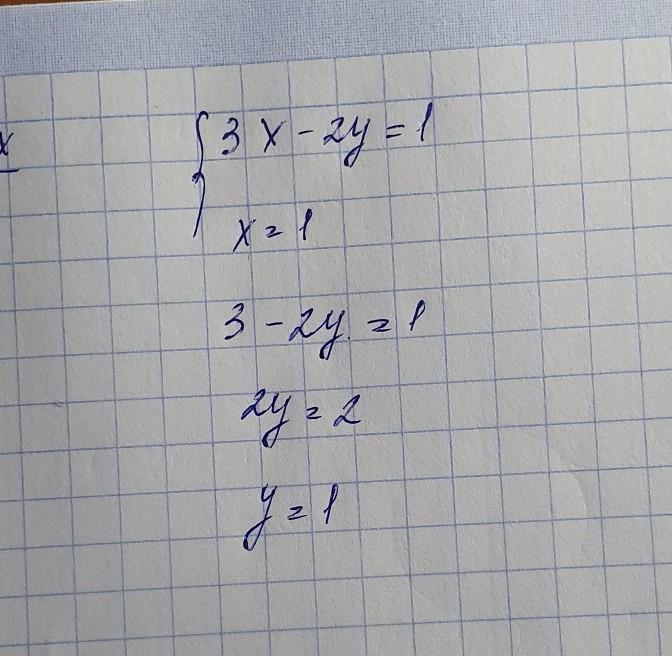 x
3x - 2y = 1
x = 1
3 - 2y = 1
2y = 2
y = 1